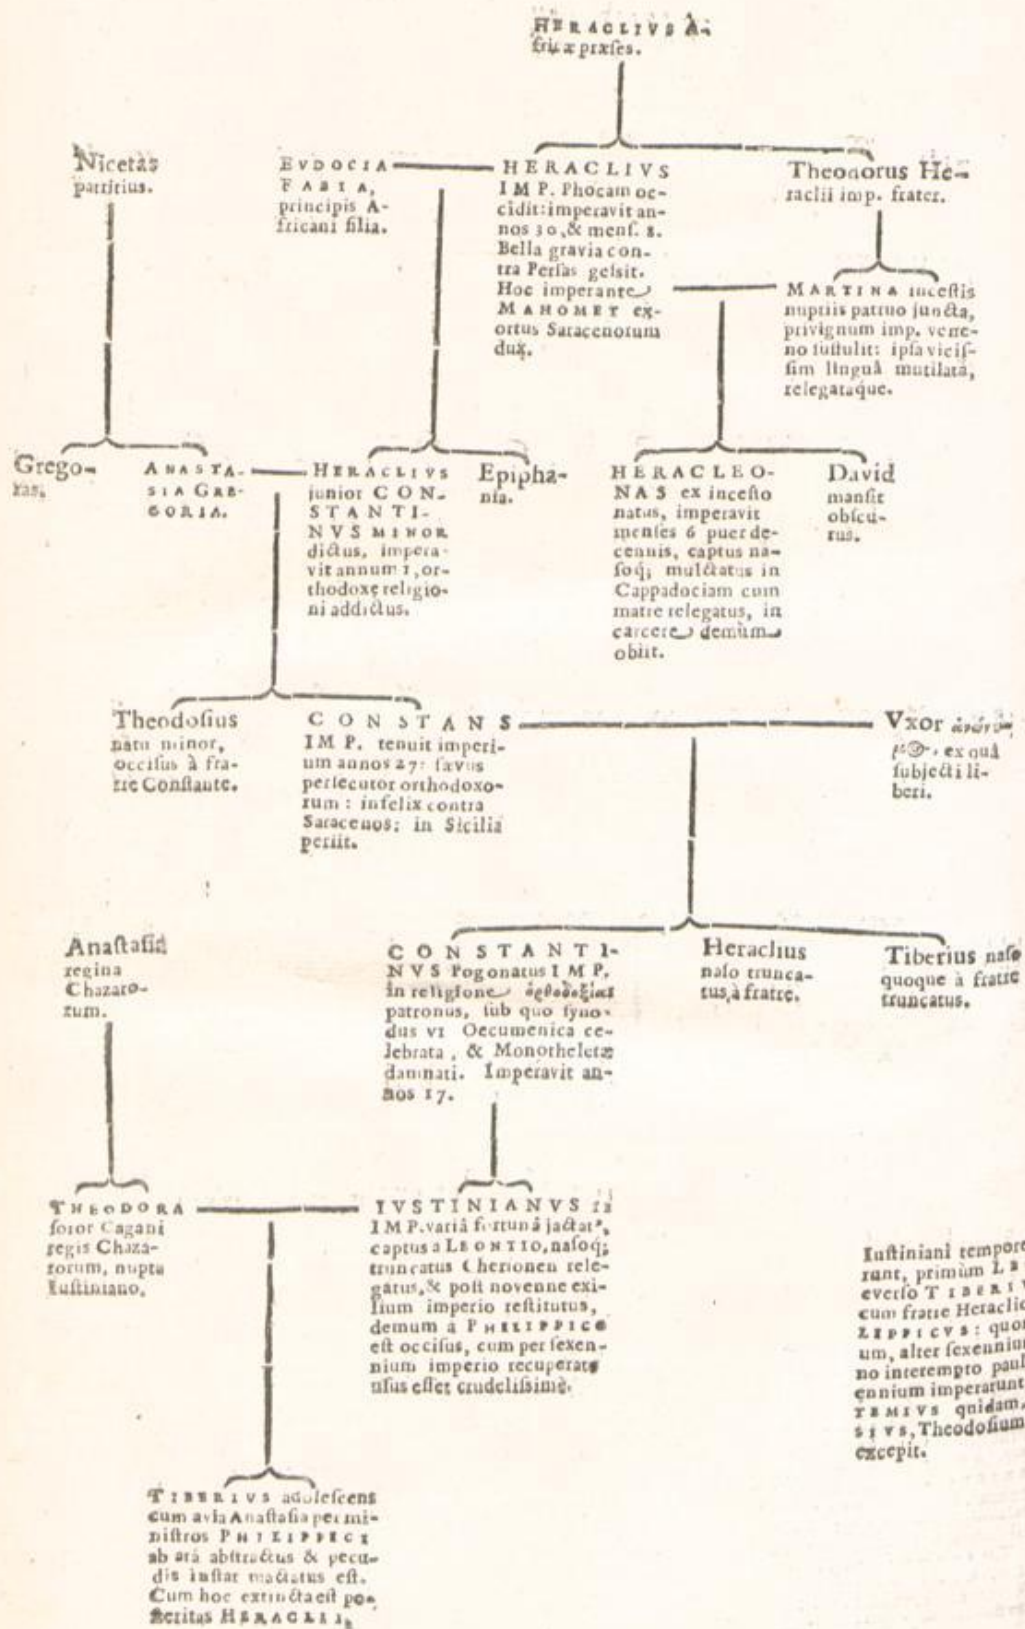 HERACLIVS A-
fricæ præſes.
Nicetas
patritius.
EVDOCIA
FABIA,
principis A-
fricani filia.
HERACLIVS
IMP. Phocam oc-
cidit: imperavit an-
nos 30, & menſ. 8.
Bella gravia con-
tra Perſas geſsit.
Hoc imperante
MAHOMET ex-
ortus Saracenorum
dux.
Theodorus He-
raclii imp. frater.
MARTINA inceſtis
nuptiis patruo juncta,
privignum imp. vene-
no ſuſtulit: ipſa viciſ-
ſim linguâ mutilatâ,
relegataque.
Grego-
ras.
ANASTA-
SIA GRE-
GORIA.
HERACLIVS
junior CON-
STANTI-
NVS MINOR
dictus, impera-
vit annum 1, or-
thodoxę religio-
ni addictus.
Epipha-
nia.
HERACLEO-
NAS ex inceſto
natus, imperavit
menſes 6 puer de-
cennis, captus na-
ſoq; mulctatus in
Cappadociam cum
matre relegatus, in
carcere demùm
obiit.
David
manſit
obſcu-
rus.
Theodoſius
natu minor,
occiſus à fra-
tre Conſtante.
CONSTANS
IMP. tenuit imperi-
um annos 27: ſævus
perſecutor orthodoxo-
rum: infelix contra
Saracenos; in Sicilia
periit.
Vxor ἀνώνυ-
μος, ex quâ
ſubjecti li-
beri.
Anaſtaſia
regina
Chazaro-
rum.
CONSTANTI-
NVS Pogonatus IMP.
in religione ὀρθοδοξίας
patronus, ſub quo ſyno-
dus VI Oecumenica ce-
lebrata, & Monotheletæ
damnati. Imperavit an-
nos 17.
Heraclius
naſo trunca-
tus, à fratre.
Tiberius naſo
quoque à fratre
truncatus.
THEODORA
ſoror Cagani
regis Chaza-
rorum, nupta
Iuſtiniano.
IVSTINIANVS
IMP. variâ fortunâ jactatꝰ,
captus a LEONTIO, naſoq;
truncatus Cherſonen rele-
gatus, & poſt novenne exi-
lium imperio reſtitutus,
demum a PHILIPPICO
eſt occiſus, cum per ſexen-
nium imperio recuperato
uſus eſſet crudeliſsimè.
Iuſtiniani tempore
runt, primùm LE
everſo TIBERIV
cum fratre Heraclio
LIPPICVS: quor
um, alter ſexenniun
no interempto paul
ennium imperarunt
TEMIVS quidam,
SIVS, Theodoſium
excepit.
TIBERIVS adoleſcens
cum avia Anaſtaſia per mi-
niſtros PHILIPPICI
ab arâ abſtractus & pecu-
dis inſtar mactatus eſt.
Cum hoc extincta eſt po-
ſteritas HERACLII.